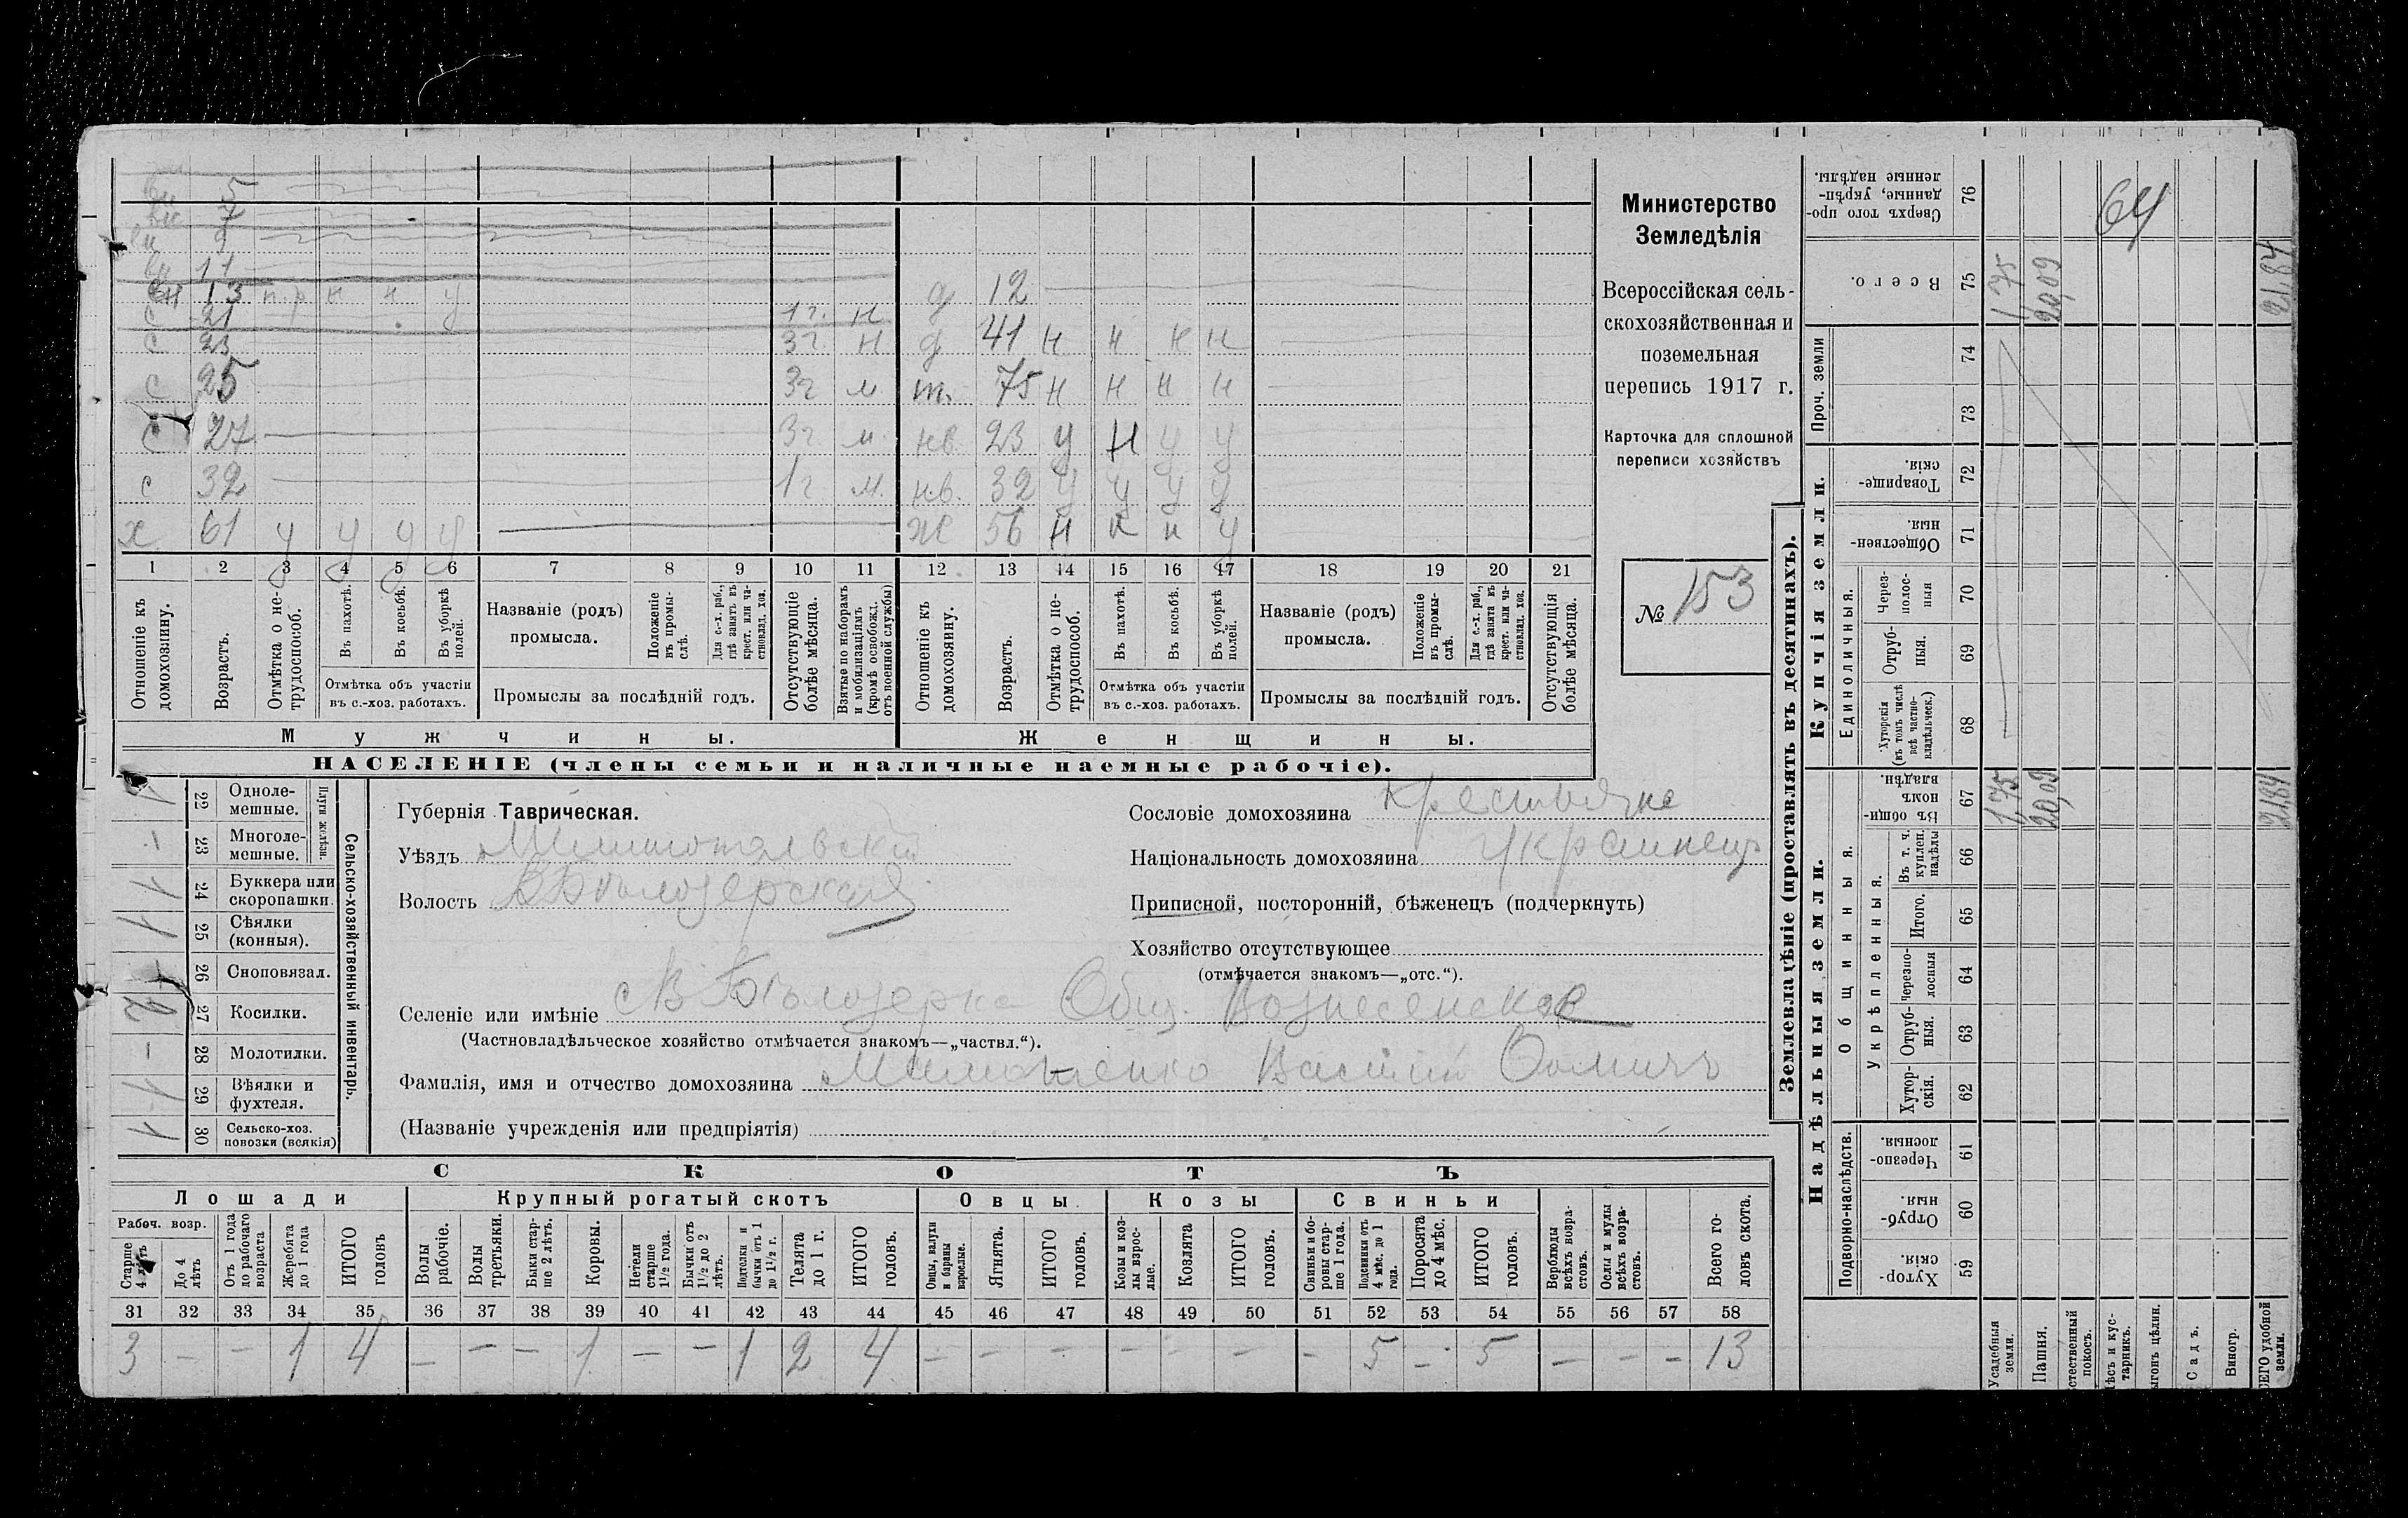 вн 5
вн 7
вн 9
вн 11
вн 13 н.р н н у
с 21 1г. н
с 23 3г н
с 25 3г м
с 27 3г. м.
с 32 1г м.
х 61 у у у у
д 12
д 41 н н н н
т. 75 н н н н
нв. 23 у н у у
нв. 32 у у у у
ж 56 н н н у
1 2 3 4 5 6 7 8 9 10 11 12 13 14 15 16 17 18 19 20 21
Отношеніе къ домохозяину.
Возрастъ.
Отмѣтка о не-трудоспособ.
Въ пахотѣ.
Въ косьбѣ.
Въ уборкѣ полей.
Отмѣтка объ участіи въ с.-хоз. работахъ.
Названіе (родъ) промысла.
Положеніе въ промы-слѣ.
Для с.-х. раб., гдѣ занятъ въ крест. или ча-стновлад. хоз.
Промыслы за послѣдній годъ.
Отсутствующіе болѣе мѣсяца.
Взятые по наборамъ и мобилизаціямъ (кромѣ освобожд. отъ военной службы)
Отношеніе къ домохозяину.
Возрастъ.
Отмѣтка о не-трудоспособ.
Въ пахотѣ.
Въ косьбѣ.
Въ уборкѣ полей.
Отмѣтка объ участіи въ с.-хоз. работахъ.
Названіе (родъ) промысла.
Положеніе въ промы-слѣ.
Для с.-х. раб., гдѣ занята въ крест. или ча-стновлад. хоз.
Промыслы за послѣдній годъ.
Отсутствующія болѣе мѣсяца.
Мужчины.
Женщины.
НАСЕЛЕНІЕ (члены семьи и наличные наемные рабочіе).
Министерство
Земледѣлія
Всероссійская сель-
скохозяйственная и
поземельная
перепись 1917 г.
Карточка для сплошной
переписи хозяйствъ
№ 153
22 Одноле-мешные.
23 Многоле-мешные. –
Плуги желѣзн.
24 Буккера или скоропашки.
25 Сѣялки (конныя).
26 Сноповязал.
27 Косилки.
28 Молотилки. –
29 Вѣялки и фухтеля.
30 Сельско-хоз. повозки (всякія)
Сельско-хозяйственный инвентарь.
Губернія Таврическая.
Уѣздъ Мелитопольскій
Волость В Бѣлозерская
Сословіе домохозяина крестьяне
Національность домохозяина украинецъ
Приписной, посторонній, бѣженецъ (подчеркнуть)
Хозяйство отсутствующее
(отмѣчается знакомъ—„отс.“).
Селеніе или имѣніе с В Бѣлозерка Общ. Вознесенское
(Частновладѣльческое хозяйство отмѣчается знакомъ—„частвл.“).
Фамилія, имя и отчество домохозяина Василій Фомичъ
(Названіе учрежденія или предпріятія)
СКОТЪ
Лошади
Крупный рогатый скотъ
Овцы
Козы
Свиньи
Рабоч. возр.
Старше 4 лѣтъ
До 4 лѣтъ
Отъ 1 года до рабочаго возраста
Жеребята до 1 года
ИТОГО головъ
Волы рабочіе.
Волы третьяки.
Быки стар-ше 2 лѣтъ.
Коровы.
Нетели старше 1½ года.
Бычки отъ 1½ до 2 лѣтъ.
Подтелки и бычки отъ 1 до 1½ г.
Телята до 1 г.
ИТОГО головъ.
Овцы, валухи и бараны взрослые.
Ягнята.
ИТОГО головъ.
Козы и коз-лы взрос-лые.
Козлята
ИТОГО головъ.
Свиньи и бо-ровы стар-ше 1 года.
Подсвинки отъ 4 мѣс. до 1 года.
Поросята до 4 мѣс.
ИТОГО головъ.
Верблюды всѣхъ возра-стовъ.
Ослы и мулы всѣхъ возра-стовъ.
Всего го-ловъ скота.
31 32 33 34 35 36 37 38 39 40 41 42 43 44 45 46 47 48 49 50 51 52 53 54 55 56 57 58
3 – – 1 4 – – – 1 – – 1 2 4 – – – – – – – 5 – 5 – – – 13
Землевладѣніе (проставлять въ десятинахъ).
Купчія земли.
Надѣльныя земли.
Сверхъ того про-данные, укрѣп-ленные надѣлы. 76 64
Всего. 75 1,75 20,09 21,84
Проч. земли 74 73
Товарище-скія. 72
Обществен-ныя. 71
Единоличныя.
Через-полос-ныя 70
Отруб-ныя. 69
Хуторскія (въ томъ числѣ всѣ частно-владѣльческ.) 68
Общинныя.
Въ общин-номъ владѣн. 67 1,75 20,09 21,84
Въ т. ч. куплен. надѣлы 66
Укрѣпленныя.
Итого. 65
Черезпо-лосныя 64
Отруб-ныя. 63
Хутор-скія. 62
Подворно-наслѣдств.
Черезпо-лосныя. 61
Отруб-ныя. 60
Хутор-скія. 59
Усадебныя земли.
Пашня.
стественный покосъ.
ѣсъ и кус-тарникъ.
ыгонъ цѣлин.
Садъ.
Виногр.
СЕГО удобной земли.